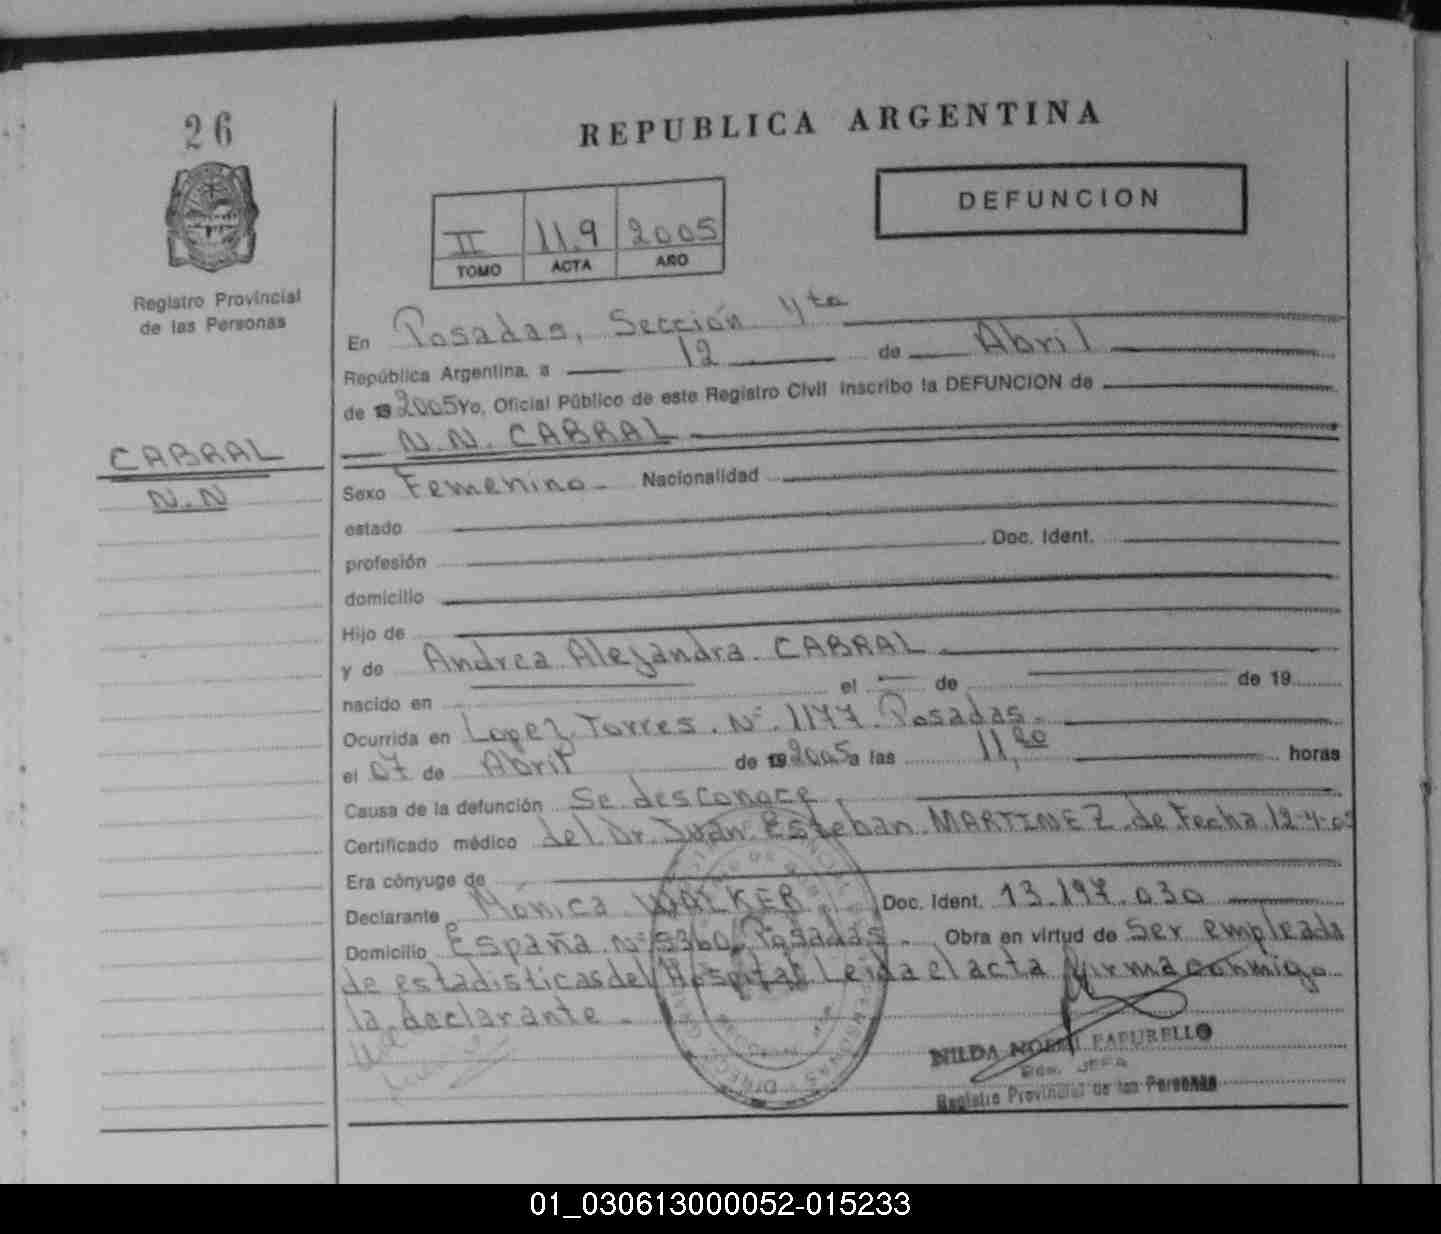 26
REPUBLICA ARGENTINA
DEFUNCION
II 119 2005
TOMO ACTA AÑO
Registro Provincial
de las Personas
En Posadas, Sección 4ta
República Argentina, a 12 de Abril
de 19 2005 Yo, Oficial Público de este Registro Civil inscribo la DEFUNCION de
N.N. CABRAL
CABRAL
N.N
Sexo Femenino Nacionalidad
estado
profesión Doc. Ident.
domicilio
Hijo de
y de Andrea Alejandra CABRAL
nacido en el de de 19
Ocurrida en Lopez Torres Nº 1177 Posadas
el 07 de Abril de 19 2005 a las 11,20 horas
Causa de la defunción Se desconoce
Certificado médico del Dr. Juan Esteban MARTINEZ de Fecha 12-4-05
Era cónyuge de
Declarante Mónica WALKER Doc. Ident. 13.197.030
Domicilio España Nº 5360 Posadas Obra en virtud de Ser empleada
de estadisticas del Hospital Leida el acta firma conmigo
la declarante
NILDA NOEMI
JEFA
Registro Provincial de las Personas
01_030613000052-015233